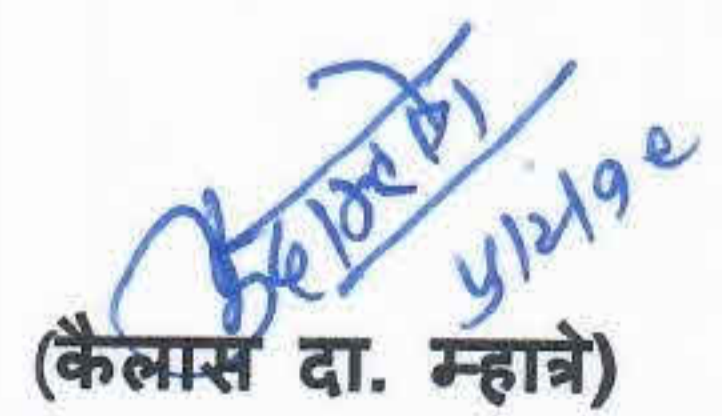 ५/२/१९
(कैलास दा. म्हात्रे)